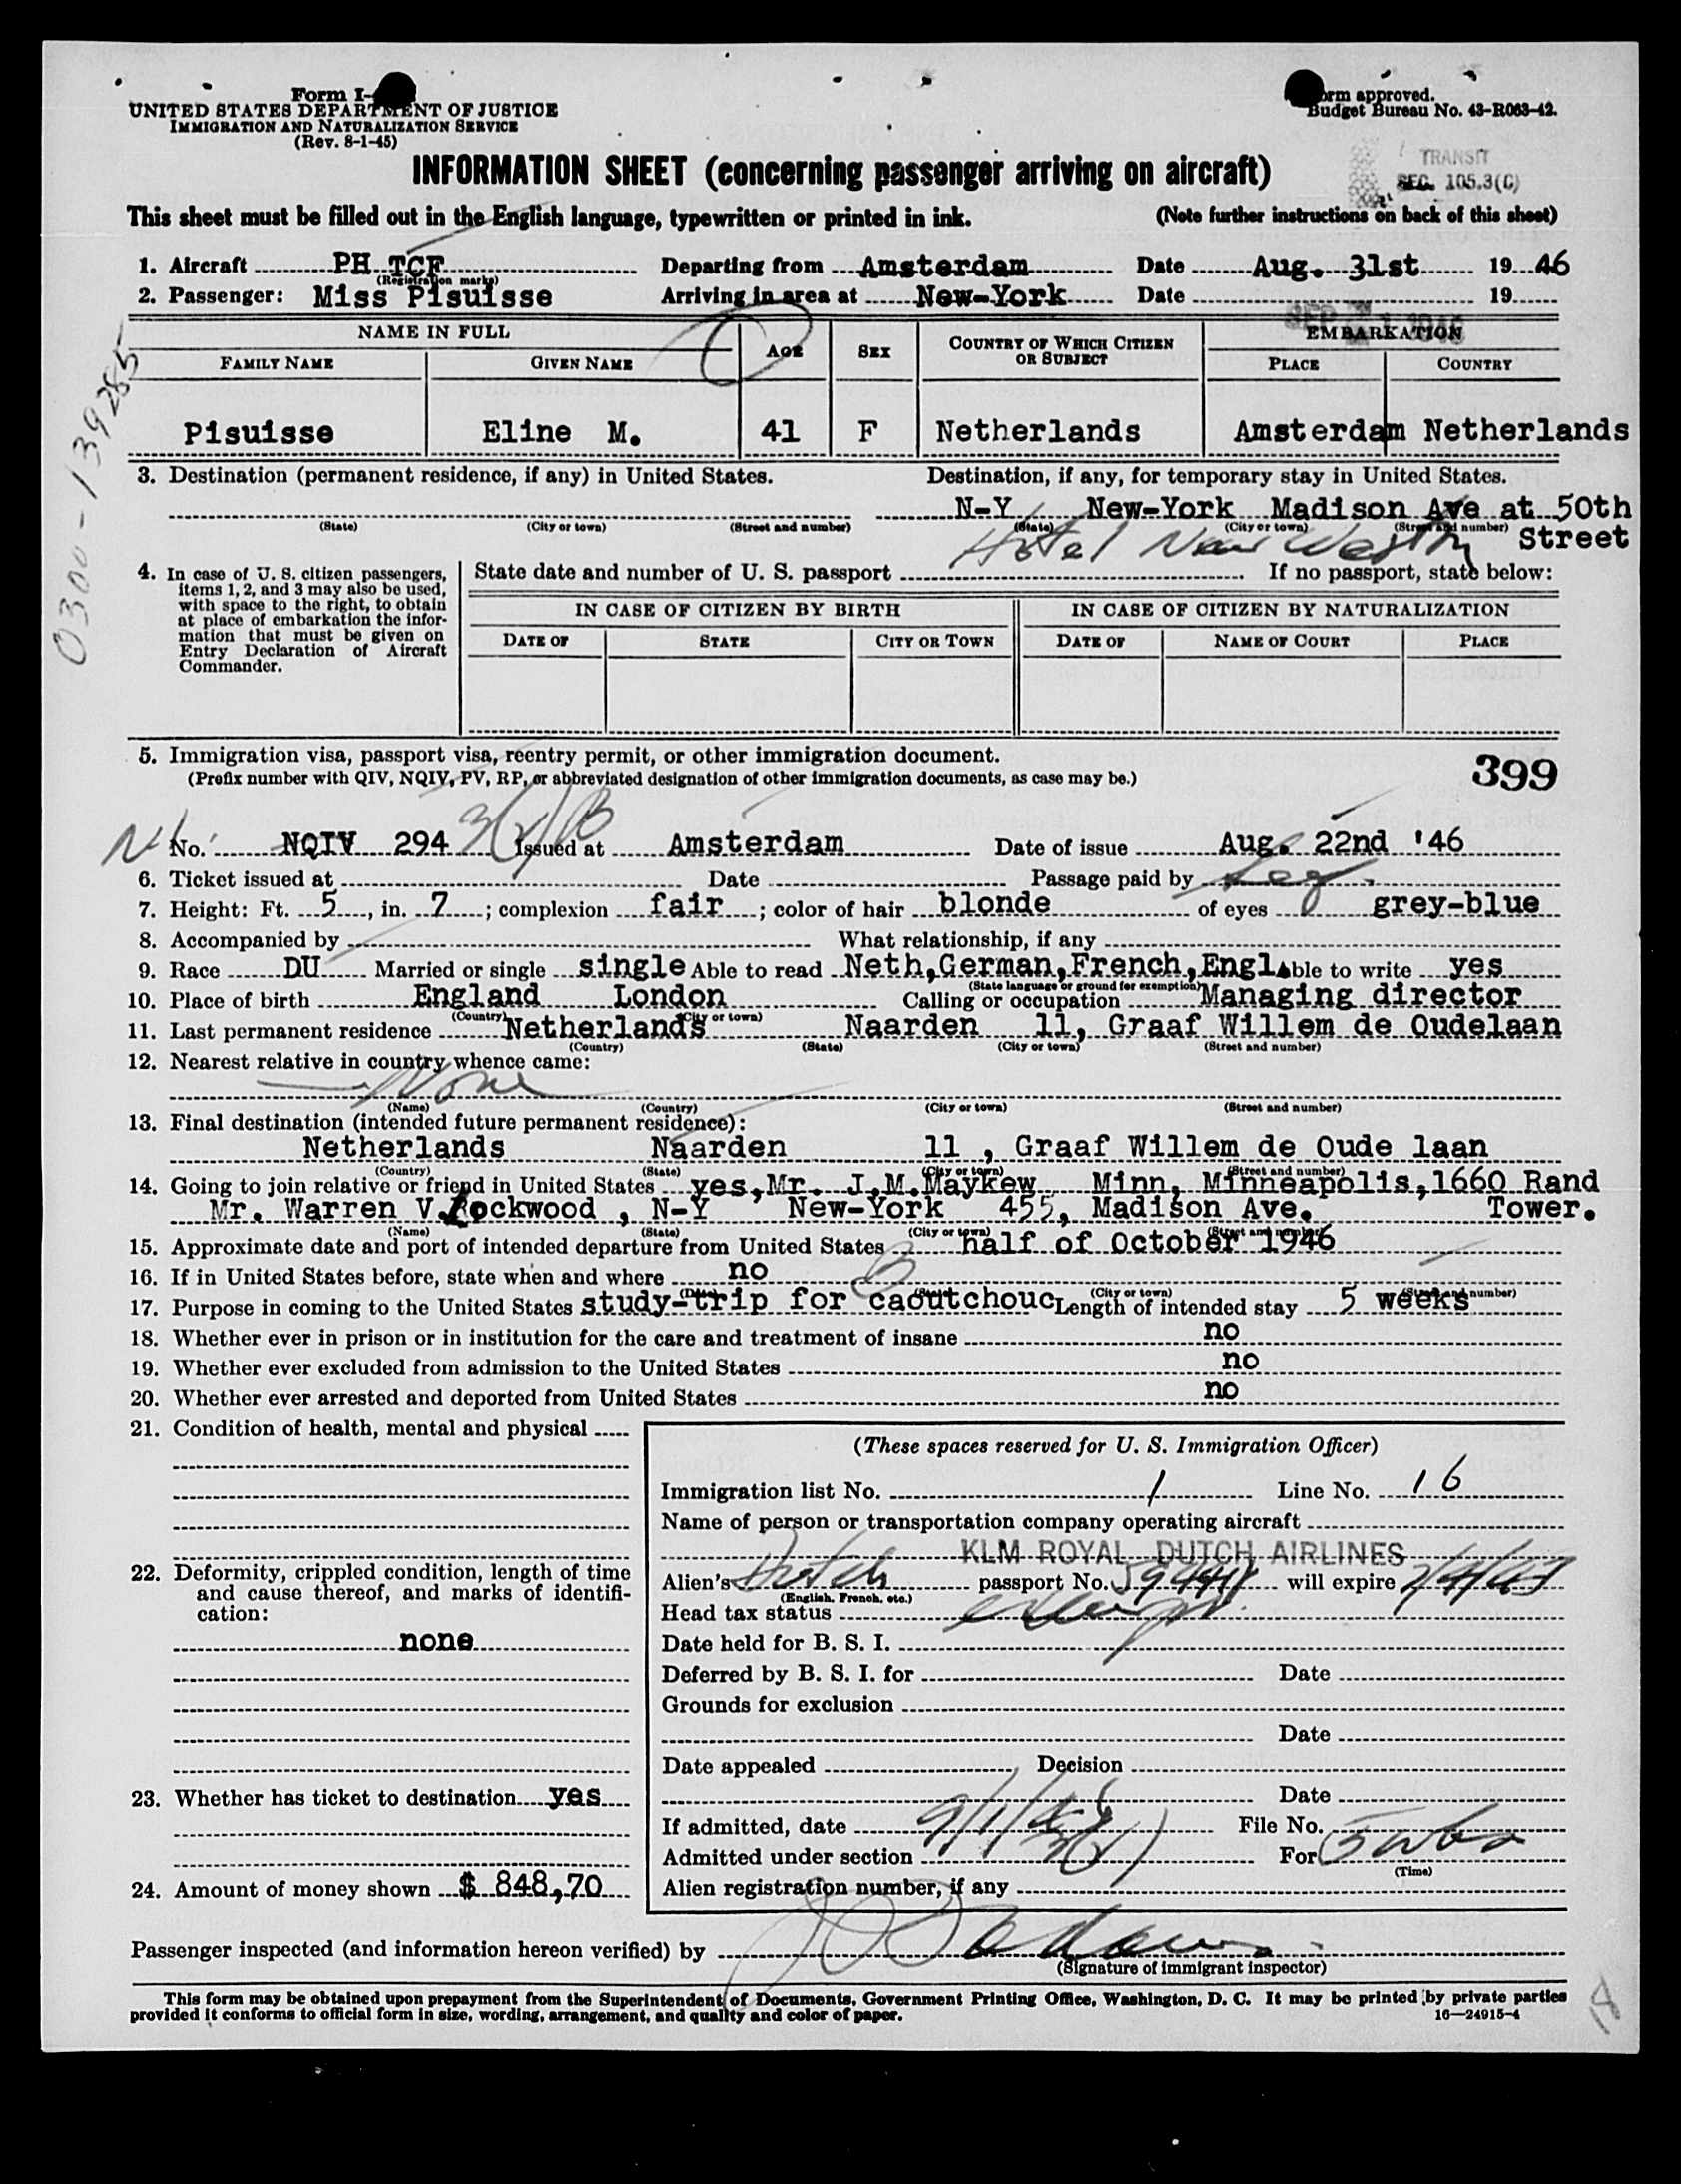 Form I-
UNITED STATES DEPARTMENT OF JUSTICE
IMMIGRATION AND NATURALIZATION SERVICE
(Rev. 8-1-45)
orm approved.
Budget Bureau No. 43-R063-42.
INFORMATION SHEET (concerning passenger arriving on aircraft)
TRANSIT
SEC. 105.3(C)
This sheet must be filled out in the English language, typewritten or printed in ink. (Note further instructions on back of this sheet)
1. Aircraft PH TCF Departing from Amsterdam Date Aug. 31st 19 46
(Registration marks)
2. Passenger: Miss Pisuisse Arriving in area at New-York Date 19
NAME IN FULL AGE SEX COUNTRY OF WHICH CITIZEN OR SUBJECT EMBARKATION
FAMILY NAME GIVEN NAME PLACE COUNTRY
Pisuisse Eline M. 41 F Netherlands Amsterdam Netherlands
0300-139285
3. Destination (permanent residence, if any) in United States. Destination, if any, for temporary stay in United States.
N-Y New-York Madison Ave at 50th
(State) (City or town) (Street and number) (State) (City or town) (Street and number)
Hotel New Weston Street
4. In case of U. S. citizen passengers, items 1, 2, and 3 may also be used, with space to the right, to obtain at place of embarkation the information that must be given on Entry Declaration of Aircraft Commander.
State date and number of U. S. passport If no passport, state below:
IN CASE OF CITIZEN BY BIRTH IN CASE OF CITIZEN BY NATURALIZATION
DATE OF STATE CITY OR TOWN DATE OF NAME OF COURT PLACE
5. Immigration visa, passport visa, reentry permit, or other immigration document.
(Prefix number with QIV, NQIV, PV, RP, or abbreviated designation of other immigration documents, as case may be.)
399
No. NQIV 294 3(2)B Issued at Amsterdam Date of issue Aug. 22nd '46
6. Ticket issued at Date Passage paid by
7. Height: Ft. 5, in. 7; complexion fair; color of hair blonde of eyes grey-blue
8. Accompanied by What relationship, if any
9. Race DU Married or single single Able to read Neth,German,French,Engl Able to write yes
(State language or ground for exemption)
10. Place of birth England London Calling or occupation Managing director
(Country) (City or town)
11. Last permanent residence Netherlands Naarden 11, Graaf Willem de Oudelaan
(Country) (State) (City or town) (Street and number)
12. Nearest relative in country whence came:
None
(Name) (Country) (City or town) (Street and number)
13. Final destination (intended future permanent residence):
Netherlands Naarden 11 , Graaf Willem de Oude laan
(Country) (State) (City or town) (Street and number)
14. Going to join relative or friend in United States yes,Mr. J.M.Maykew Minn, Minneapolis,1660 Rand
Mr. Warren V.Lockwood , N-Y New-York 455, Madison Ave. Tower.
(Name) (State) (City or town) (Street and number)
15. Approximate date and port of intended departure from United States half of October 1946
16. If in United States before, state when and where no
17. Purpose in coming to the United States study-trip for caoutchouc Length of intended stay 5 weeks
18. Whether ever in prison or in institution for the care and treatment of insane no
19. Whether ever excluded from admission to the United States no
20. Whether ever arrested and deported from United States no
21. Condition of health, mental and physical
22. Deformity, crippled condition, length of time and cause thereof, and marks of identification:
none
23. Whether has ticket to destination yes
24. Amount of money shown $ 848,70
(These spaces reserved for U. S. Immigration Officer)
Immigration list No. 1 Line No. 16
Name of person or transportation company operating aircraft
KLM ROYAL DUTCH AIRLINES
Alien's Dutch passport No. will expire
(English, French, etc.)
Head tax status
Date held for B. S. I.
Deferred by B. S. I. for Date
Grounds for exclusion
Date
Date appealed Decision
Date
If admitted, date 9/1/46 File No.
Admitted under section 3(2) For
(Time)
Alien registration number, if any
Passenger inspected (and information hereon verified) by
(Signature of immigrant inspector)
This form may be obtained upon prepayment from the Superintendent of Documents, Government Printing Office, Washington, D. C. It may be printed by private parties
provided it conforms to official form in size, wording, arrangement, and quality and color of paper. 16—24915-4